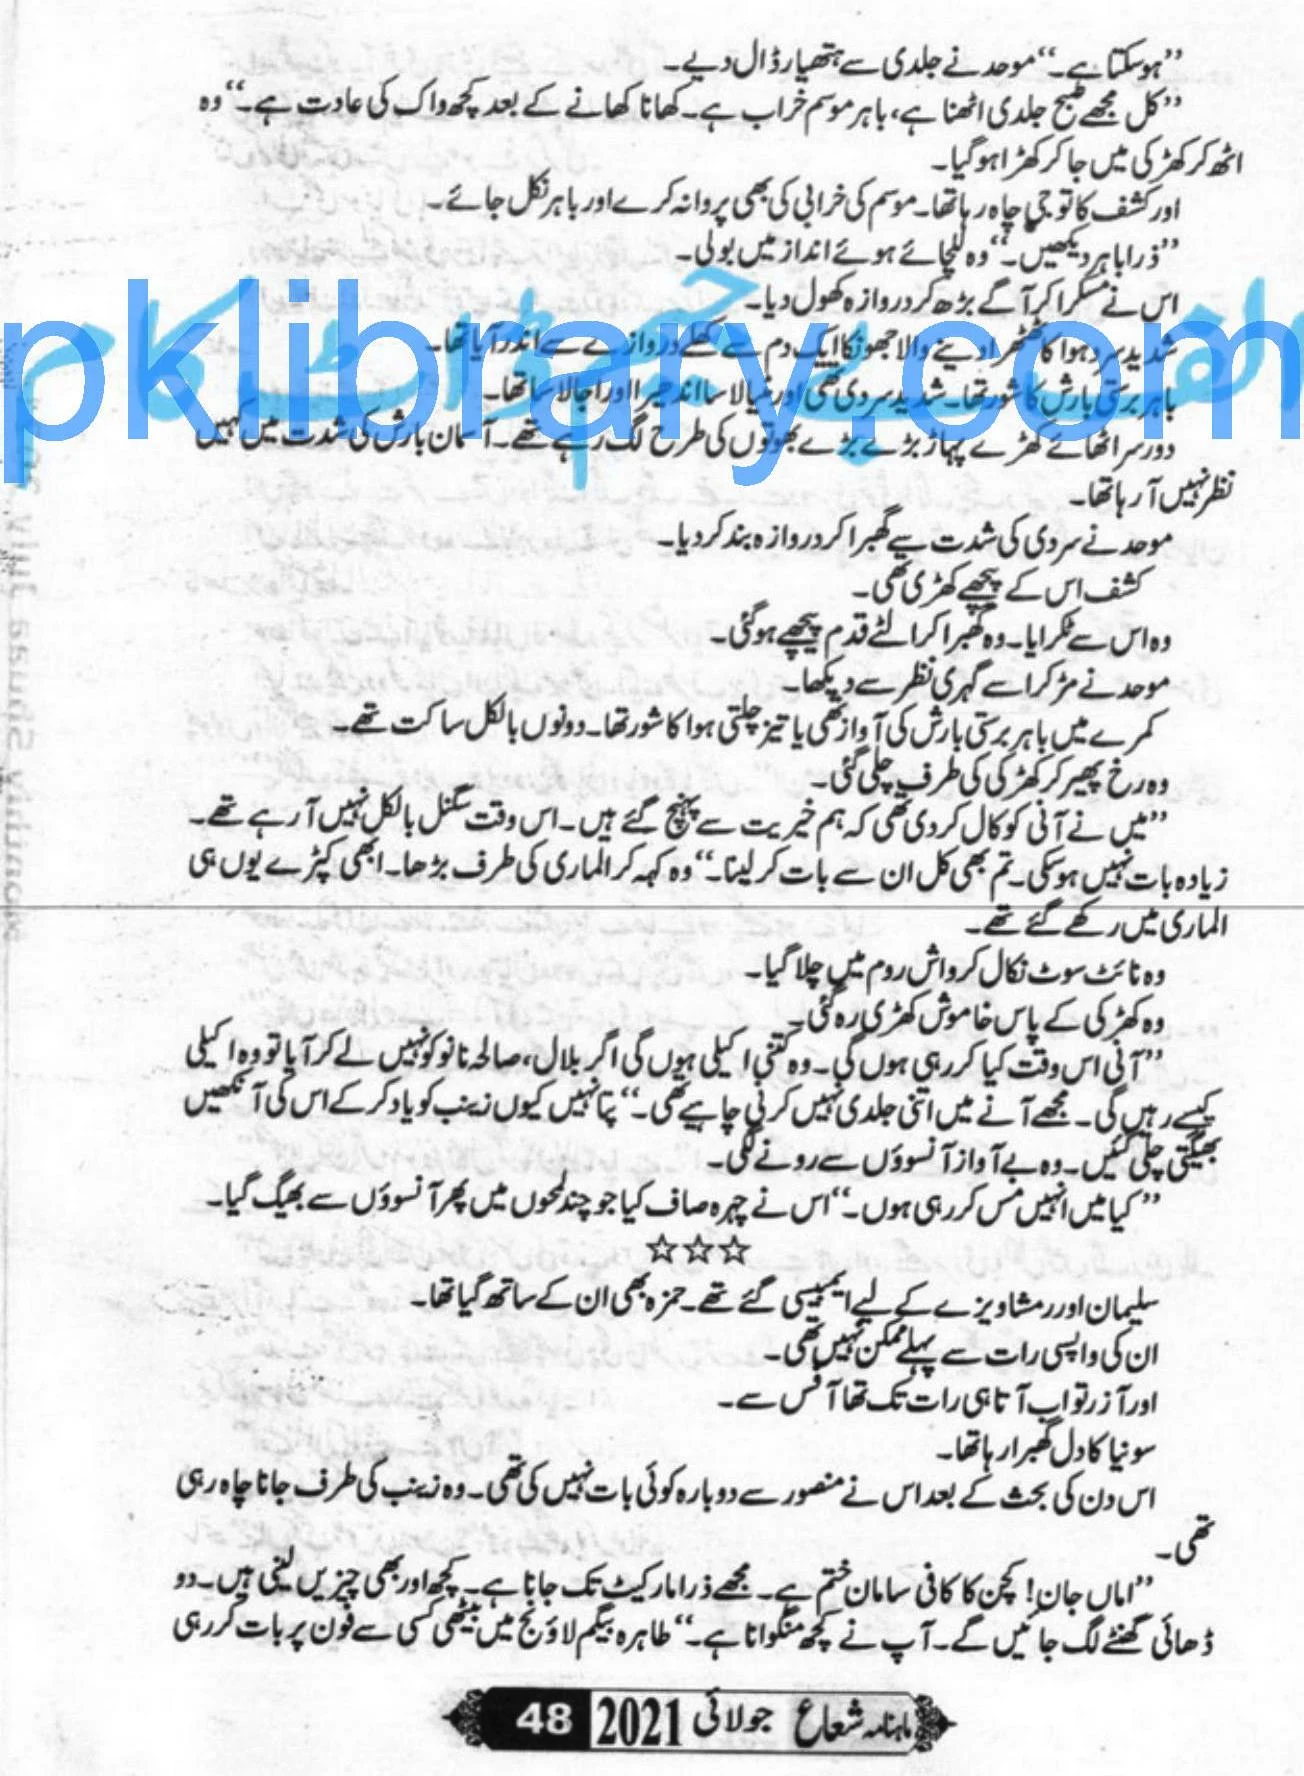 ”ہوسکتا ہے۔“ موحد نے جلدی سے ہتھیار ڈال دیے۔
”کل مجھے صبح جلدی اٹھنا ہے، باہر موسم خراب ہے۔ کھانا کھانے کے بعد کچھ واک کی عادت ہے۔“ وہ
اٹھ کر کھڑکی میں جا کر کھڑا ہوگیا۔
اور کشف کا تو جی چاہ رہا تھا۔ موسم کی خرابی کی بھی پروا نہ کرے اور باہر نکل جائے۔
”ذرا باہر دیکھیں۔“ وہ للچائے ہوئے انداز میں بولی۔
اس نے مسکرا کر آگے بڑھ کر دروازہ کھول دیا۔
pklibrary.com
شدید سرد ہوا کا ٹھٹھرا دینے والا جھونکا ایک دم سے کھلے دروازے سے اندر آیا تھا۔
باہر برستی بارش کا شور تھا۔ شدید سردی تھی اور مٹیالا سا اندھیرا اور اجالا سا تھا۔
دور سر اٹھائے کھڑے پہاڑ بڑے بڑے بھوتوں کی طرح لگ رہے تھے۔ آسمان بارش کی شدت میں کہیں
نظر نہیں آ رہا تھا۔
موحد نے سردی کی شدت سے گھبرا کر دروازہ بند کر دیا۔
کشف اس کے پیچھے کھڑی تھی۔
وہ اس سے ٹکرایا۔ وہ گھبرا کر الٹے قدم پیچھے ہوگئی۔
موحد نے مڑ کر اسے گہری نظر سے دیکھا۔
کمرے میں باہر برستی بارش کی آواز تھی یا تیز چلتی ہوا کا شور تھا۔ دونوں بالکل ساکت تھے۔
وہ رخ پھیر کر کھڑکی کی طرف چلی گئی۔
”میں نے آنی کو کال کر دی تھی کہ ہم خیریت سے پہنچ گئے ہیں۔ اس وقت سگنل بالکل نہیں آ رہے تھے۔
زیادہ بات نہیں ہوسکی۔ تم بھی کل ان سے بات کر لینا۔“ وہ کہہ کر الماری کی طرف بڑھا۔ ابھی کپڑے یوں ہی
الماری میں رکھے گئے تھے۔
وہ نائٹ سوٹ نکال کر واش روم میں چلا گیا۔
وہ کھڑکی کے پاس خاموش کھڑی رہ گئی۔
”آنی اس وقت کیا کر رہی ہوں گی۔ وہ کتنی اکیلی ہوں گی اگر بلال، صالحہ نانو کو نہیں لے کر آیا تو وہ اکیلی
کیسے رہیں گی۔ مجھے آنے میں اتنی جلدی نہیں کرنی چاہیے تھی۔“ پتا نہیں کیوں زینب کو یاد کر کے اس کی آنکھیں
بھیگتی چلی گئیں۔ وہ بے آواز آنسوؤں سے رونے لگی۔
”کیا میں انہیں مس کر رہی ہوں۔“ اس نے چہرہ صاف کیا جو چند لمحوں میں پھر آنسوؤں سے بھیگ گیا۔
☆☆☆
سلیمان اور رمشا ویزے کے لیے ایمبیسی گئے تھے۔ حمزہ بھی ان کے ساتھ گیا تھا۔
ان کی واپسی رات سے پہلے ممکن نہیں تھی۔
اور آزر تو اب آتا ہی رات تک تھا آفس سے۔
سونیا کا دل گھبرا رہا تھا۔
اس دن کی بحث کے بعد اس نے منصور سے دوبارہ کوئی بات نہیں کی تھی۔ وہ زینب کی طرف جانا چاہ رہی
تھی۔
”اماں جان! کچن کا کافی سامان ختم ہے۔ مجھے ذرا مارکیٹ تک جانا ہے۔ کچھ اور بھی چیزیں لینی ہیں۔ دو
ڈھائی گھنٹے لگ جائیں گے۔ آپ نے کچھ منگوانا ہے۔“ طاہرہ بیگم لاؤنج میں بیٹھی کسی سے فون پر بات کر رہی
ماہنامہ شعاع جولائی 2021 48